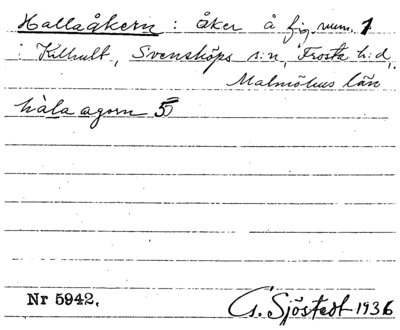 Hallaåkern : åker å fig. num. 1
i Killhult, Svensköps s:n, Frosta h:d,
Malmöhus län
håla agorn 5)
Nr 5942.
G. Sjöstedt 1936